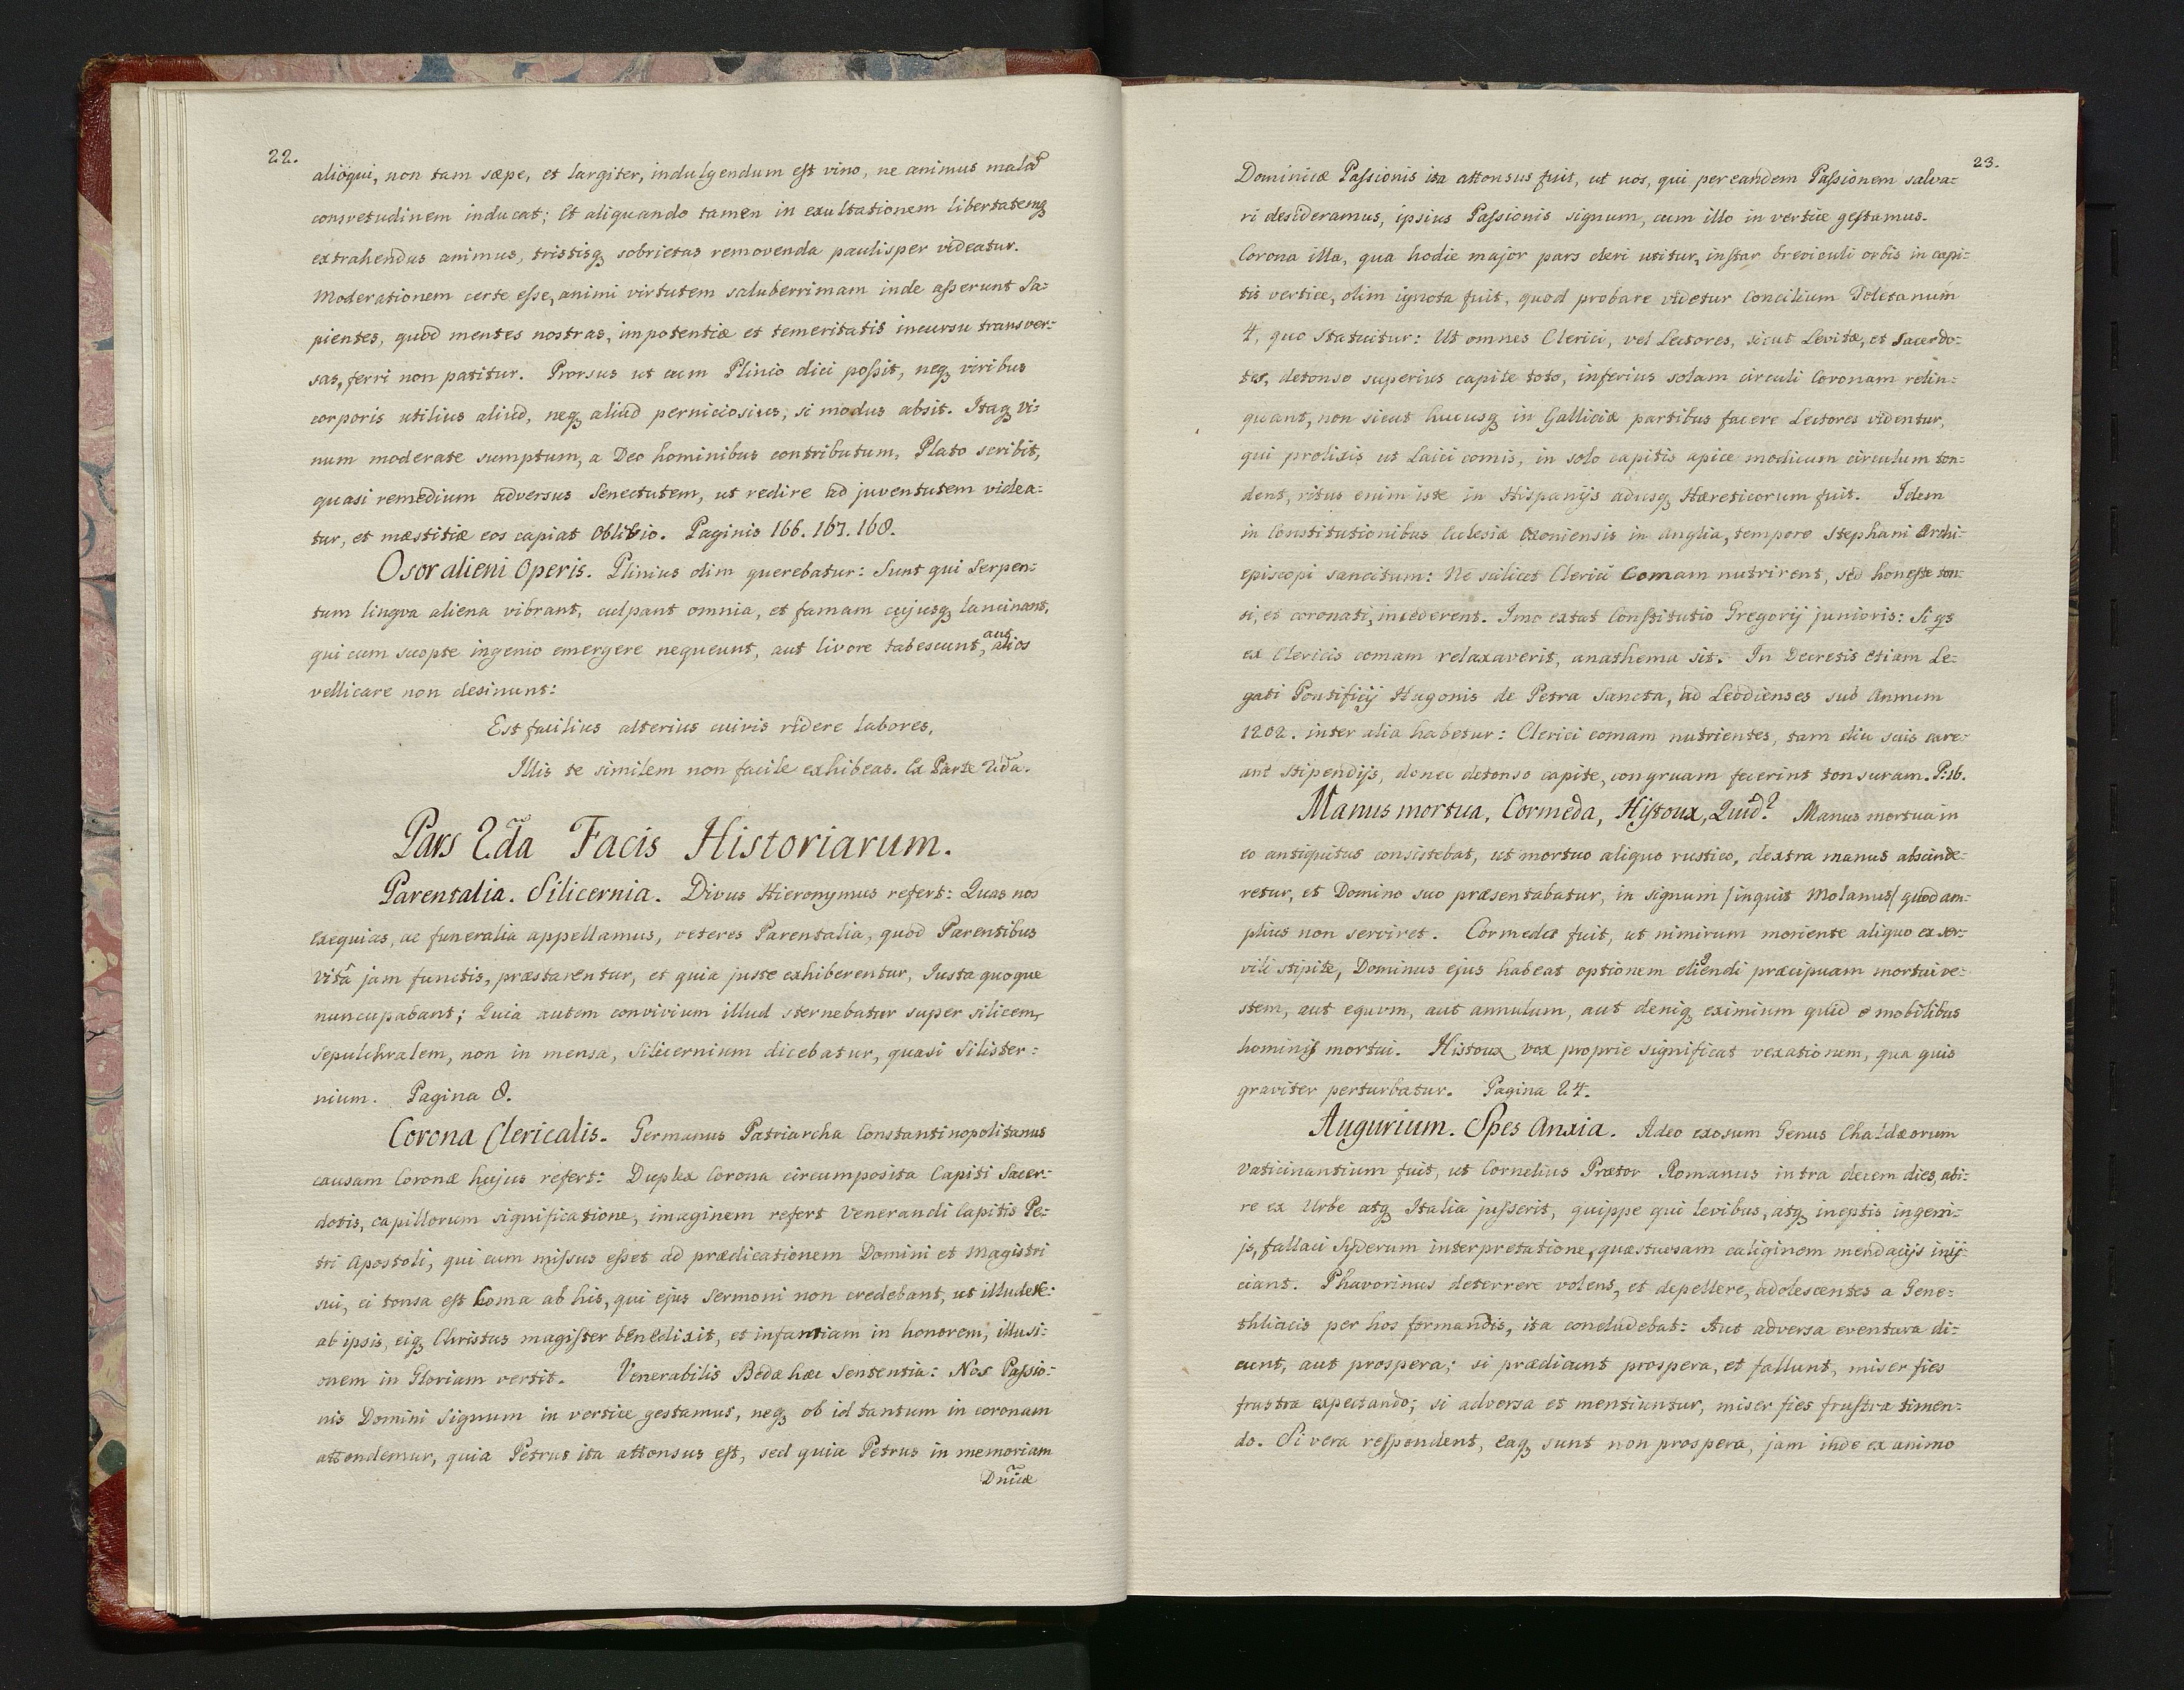 22.
alioqui, non tam sæpe, et largiter, indulgendum est vino, ne animus malã
consvetudinem inducat; Et aliquando tamen in exultationem libertatemq
extrahendus animus, tristisq sobrietas removenda paulisper videatur.
Moderationem certe esse, animi virtutem saluberrimam inde asserunt Sa=
pientes, quod mentes nostras, impotentiæ et temeritatis incursu transver=
sas, ferri non patitur. Prorsus ut cum Plinio dici possit, neq viribus
corporis utilius aliud, neq aliud perniciosius, si modus absit. Itaq vi=
num moderate sumptum, a Deo hominibus contributum, Plato scribit,
quasi remedium adversus Senectutem, ut redire ad juventutem videa=
tur, et mæstitiæ eos capiat Oblivio. Paginis 166. 167. 168.
Osor alieni Operis. Plinius olim querebatur: Sunt qui Serpen=
tum lingva aliena vibrant, culpant omnia, et famam cujusq lancinant,
qui cum suopte ingenio emergere nequeunt, aut livore tabescunt, aut alios
vellicare non desinunt:
Est facilius alterius cuivis ridere labores,
Illis te similem non facile exhibeas. Ex Parte 2dã.
Pars 2.dã Facis Historiarum.
Parentalia. Silicernia. Divus Hieronymus refert: Quas nos
exequias, ac funeralia appellamus, veteres Parentalia, quod Parentibus
vitâ jam functis, præstarentur, et quia juste exhiberentur, Iusta quoque
nuncupabant; Quia autem convivium illud sternebatur super silicem,
sepulchralem, non in mensa, Silicernium dicebatur, quasi Silister=
nium. Pagina 8.
Corona Clericalis. Germanus Patriarcha Constantinopolitanus
causam Coronæ hujus refert: Duplex Corona circumposita Capiti Sacer=
dotis, capillorum significatione, imaginem refert Venerandi Capitis Pe=
tri Apostoli, qui cum missus esset ad prædicationem Domini et Magistri
sui, ei tonsa est Coma ab his, qui ejus Sermoni non credebant, ut illudere=
ab ipsis, eiq Christus magister benedixit, et infamiam in honorem, illusi=
onem in Gloriam vertit. Venerabilis Bedæ hæc Sententia: Nos Passio=
nis Domini Signum in vertice gestamus, neq ob id tantum in coronam
attondemur, quia Petrus ita attonsus est, sed quia Petrus in memoriam
Dnicæ
23.
Dominicæ Passionis ita attonsus fuit, ut nos, qui per eandem Passionem salva=
ri desideramus, ipsius Passionis signum, cum illo in vertice gestamus.
Corona illa, qua hodie major pars cleri utitur, instar breviculi orbis in capi=
tis vertice, olim ignota fuit, quod probare videtur Concilium Toletanum
4, quo Statuitur: Ut omnes Clerici, vel Lectores, sicut Levitæ, et Sacerdo=
tes, detonso superius capite toto, inferius solam circuli Coronam relin=
quant, non sicut hucusq in Galliciæ partibus facere Lectores videntur,
qui prolixis ut Laici comis, in solo capitis apice modicum circulum ton=
dent, ritus enim iste in Hispanijs adusq Hæreticorum fuit. Idem
in Constitutionibus Eclesiæ Oxoniensis in Anglia, tempore Stephani Archi=
episcopi sancitum: Ne scilicet Clerici Comam nutrirent, sed honeste ton=
si, et coronati, incederent. Imo extat Constitutio Gregorij junioris: Si qs
ex Clericis comam relaxaverit, anathema sit. In Decretis etiam Le=
gati Pontificij Hugonis de Petra Sancta, ad Leodienses sub Annum
1202. inter alia habetur: Clerici comam nutrientes, tam diu suis care=
ant stipendijs, donec detonso capite, congruam fecerint tonsuram. P: 16.
Manus mortua, Cormeda, Histoux, Quid? Manus mortua in
eo antiquitus consistebat, ut mortuo aliquo rustico, dextra manus abscinde=
retur, et Domino suo præsentabatur, in signum /inquit Molanus/ quod am=
plius non serviret. Cormeda fuit, ut nimirum moriente aliquo ex ser=
vili stipite, Dominus ejus habeat optionem eligendi præcipuam mortui ve=
stem, aut equvm, aut annulum, aut deniq eximium quid e mobilibus
hominis mortui. Histoux vox proprie significat vexationem, qua quis
graviter perturbatur. Pagina 24.
Augurium. Spes Anxia. Adeo exosum Genus Chaldæorum
vaticinantium fuit, ut Cornelius Prætor Romanus intra decem dies, abi=
re ex Urbe atq Italia jusserit, quippe qui levibus, atq ineptis ingeni=
js, fallaci Syderum interpretatione, quæstuosam caliginem mendacijs inij=
ciant. Phavorinus deterrere volens, et depellere, adolescentes a Gene=
thliacis per hos formandis, ita concludebat: Aut adversa eventura di=
cunt, aut prospera; si prædicunt prospera, et fallunt, miser fies
frustra expectando; si adversa et mentiuntur, miser fies frustra timen=
do. Si vera respondent, eaq sunt non prospera, jam inde ex animo